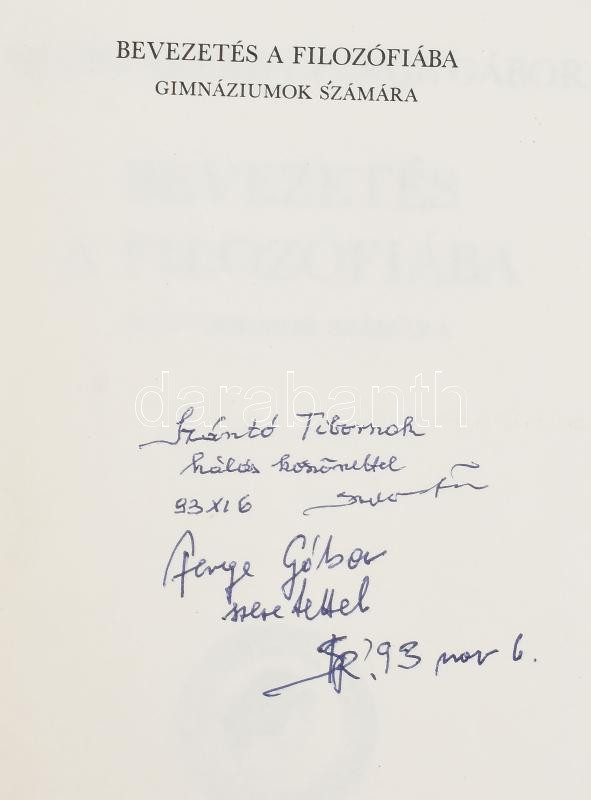 BEVEZETÉS A FILOZÓFIÁBA
GIMNÁZIUMOK SZÁMÁRA
BEVEZETÉS
A FILOZÓFIÁBA
darabanth
Szántó Tibornak
hálás köszönettel
93 XI 6
Gábor
szeretettel
93 nov 6.